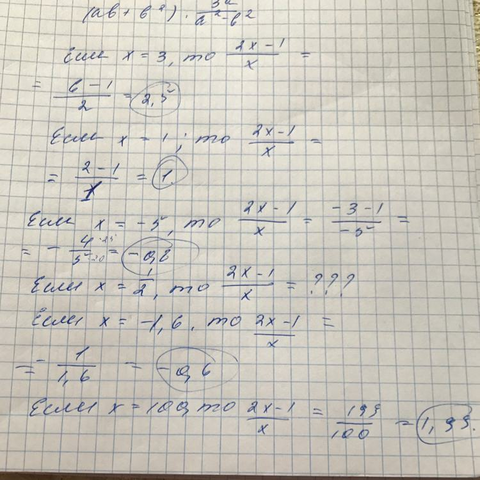 (ab + b²) · 3a / a² - b²
Если x = 3, то 2x-1 / x =
= 6-1 / 2 = 2,5
Если x = 1; то 2x-1 / x =
= 2-1 / 1 = 1
Если x = -5, то 2x-1 / x = -3-1 / -5 =
= - 4 / 5 = -0,8
Если x = 1/2, то 2x-1 / x = ???
Если x = -1,6, то 2x-1 / x =
= - 1 / 1,6 = -0,6
Если x = 100, то 2x-1 / x = 199 / 100 = 1,99.